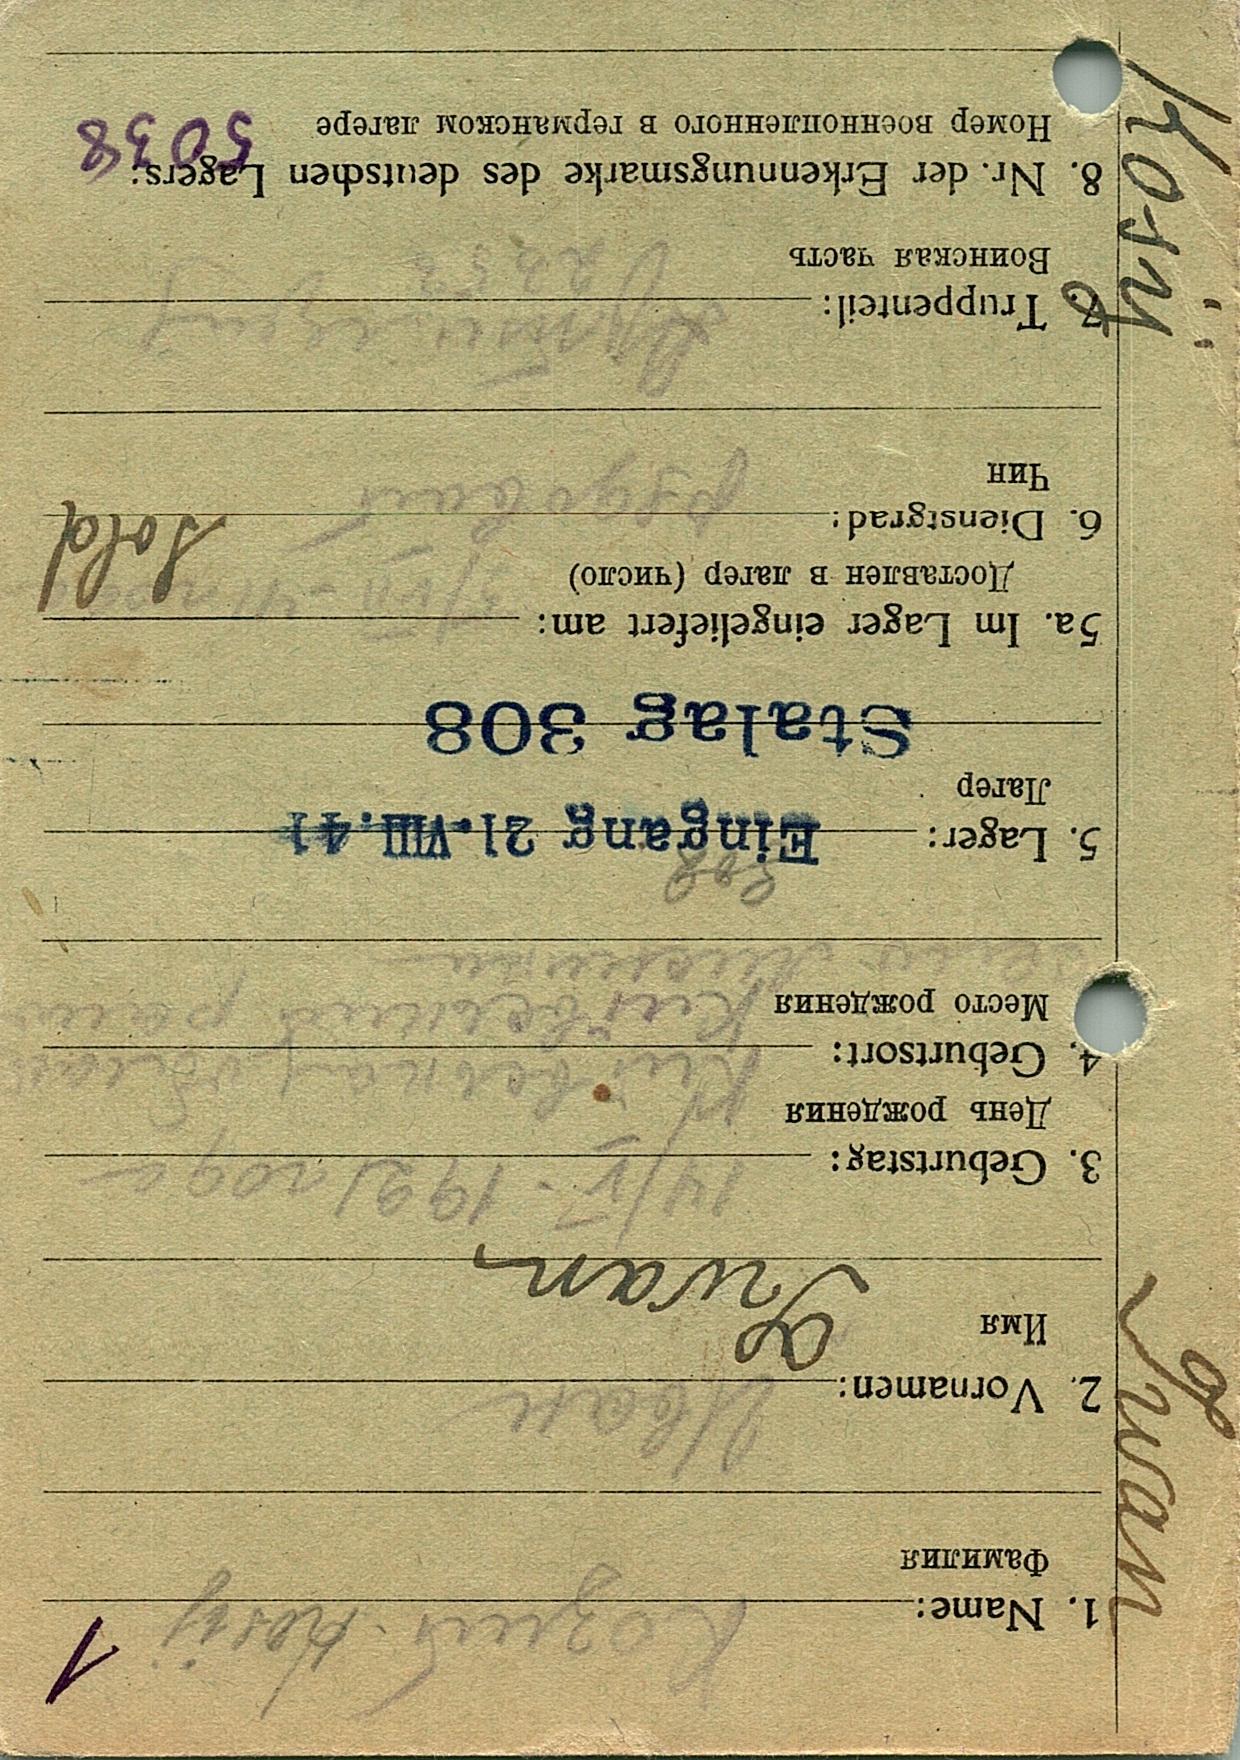 1
1. Name: Козий Kosij
Фамилия
2. Vornamen: Иван
Имя
Iwan
3. Geburtstag: 14/V - 1921 года
День рождения
4. Geburtsort:
Место рождения
5. Lager: Eingang 21. VIII. 41
308
Лагерь
Stalag 308
5a. Im Lager eingeliefert am: 3/VII - 41 года
Доставлен в лагерь (число)
Sold
6. Dienstgrad: рядовий
Чин
7. Truppenteil:
Воинская часть
8. Nr. der Erkennungsmarke des deutschen Lagers: 5038
Номер военнопленного в германском лагере
Kosij
Iwan